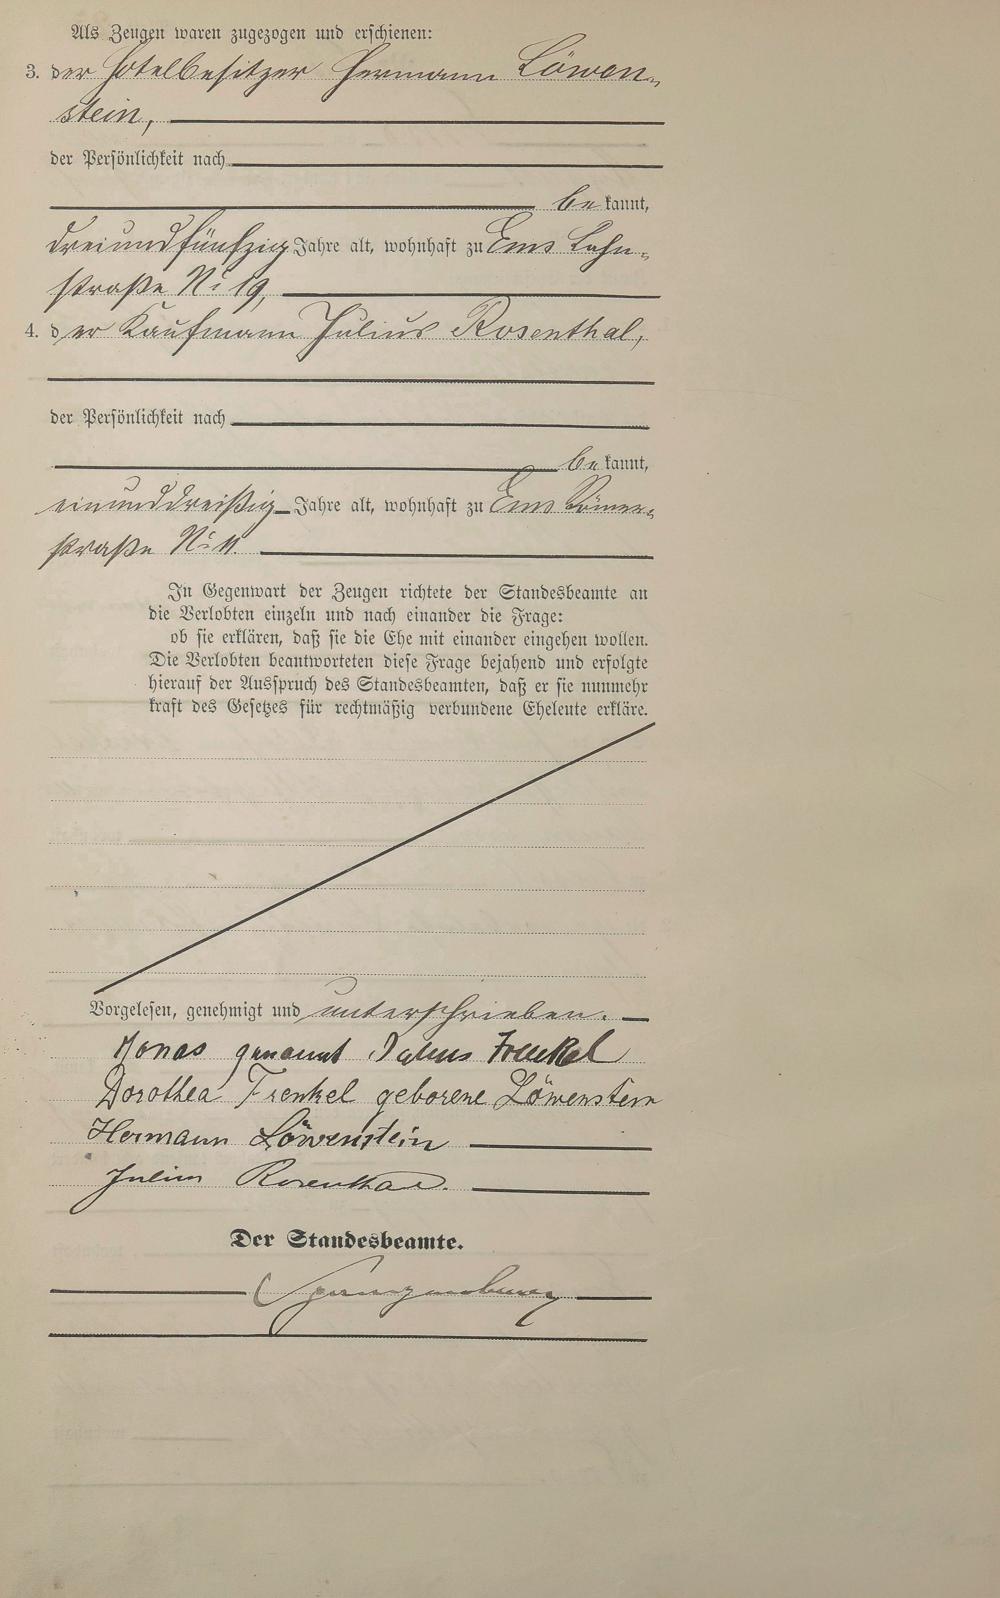 Als Zeugen waren zugezogen und erschienen:
3. der Hotelbesitzer Hermann Löwen-
stein,
der Persönlichkeit nach
bekannt,
dreiundfünfzig Jahre alt, wohnhaft zu Ems Lahn-
straße No 19,
4. der Kaufmann Julius Rosenthal,
der Persönlichkeit nach
bekannt,
einunddreißig Jahre alt, wohnhaft zu Ems Römer-
straße No 11.
In Gegenwart der Zeugen richtete der Standesbeamte an
die Verlobten einzeln und nach einander die Frage:
ob sie erklären, daß sie die Ehe mit einander eingehen wollen.
Die Verlobten beantworteten diese Frage bejahend und erfolgte
hierauf der Ausspruch des Standesbeamten, daß er sie nunmehr
kraft des Gesetzes für rechtmäßig verbundene Eheleute erkläre.
Vorgelesen, genehmigt und unterschrieben.
genannt Julius Frenkel
Dorothea Frenkel geborene Löwenstein
Hermann Löwenstein
Julius Rosenthal.
Der Standesbeamte.
Spangenberg